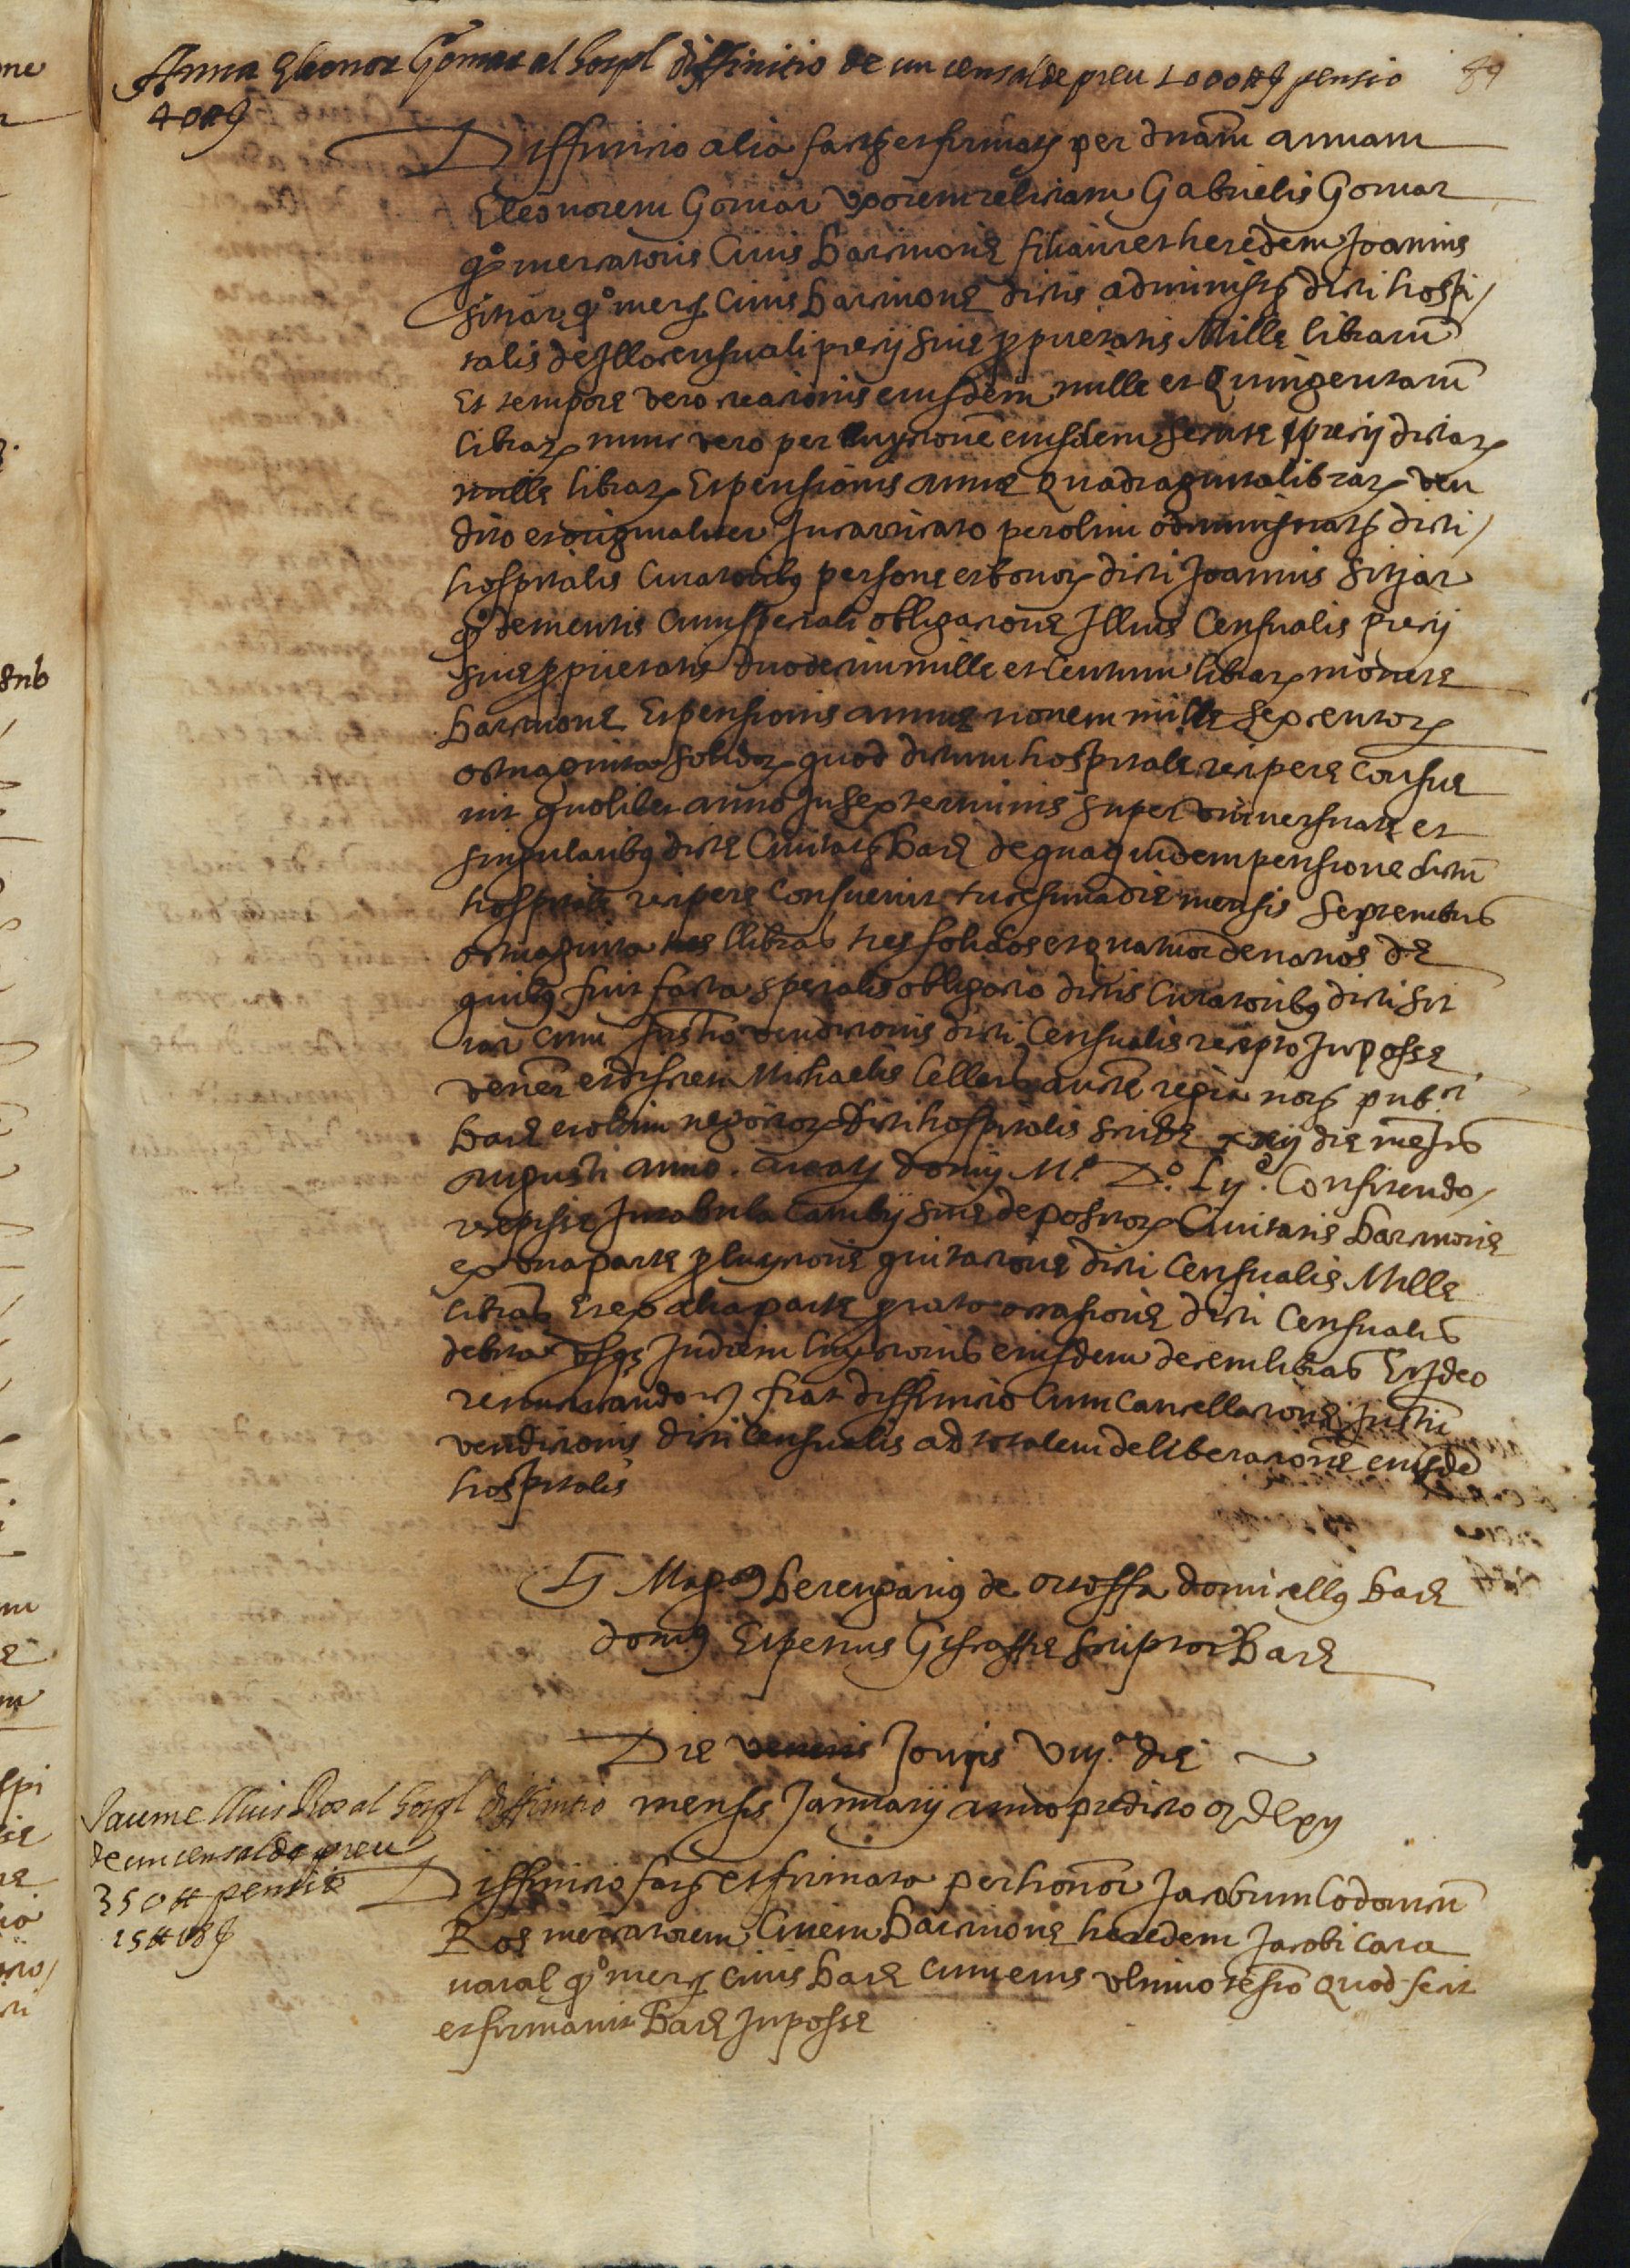 Anna Eleonor Gomar al Hospl diffinitio de un censal de preu 1000 ₶ pensio 89
40 ₶
Diffinitio alia facta et firmata per dnam annam
Eleonorem Gomar uxorem relictam Gabrielis Gomar
qº mercatoris Civis barcinone filiam et heredem Joannis
sitjar qº merc Civis barcinone dictis administ dicti hospi/
talis de Illo censuali precij sive pprietatis Mille librarum
Et tempore vero creationis eiusdem mille et Quingentarum
librar nunc vero per luytione eiusdem precij dictar
mille librar Et pensionis annue Quadraginta librar ven
dito et originaliter Incarricato per olim administrat dicti/
hospitalis Curatoribus persone et bonor dicti Joannis Sitjar
qº dementis Cum speciali obligatione Illius Censualis precij
sive pprietatis duodecim mille et Centum librar monete
barcinone Et pensionis annue novem mille sexcentor
octuaginta solidor quod dictum hospitale recipere Consue
vit quolibet anno In sex terminis super universitate et
singularibus dicte Civitatis Barc de qua quidem pensione dictum
hospitale recipere Consuevit tricesima die mensis Septembris
octuaginta tres llibras tres solidos et quatuor denarios de
quibus fuit facta specialis obligatio dictis Curatoribus dicti sit
iar cum Instro venditionis dicti Censualis recepto In posse
vener et discreti Michaelis Cellers aucte regia not pubci
Barc et olim negotior dicti hospitalis scribe xxij die mensis
augusti anno a nat domij Mº Dº Lijº. Confitendo/
recepisse In tabula Cambij sive depositor Civitatis barcinone
ex una parte p luytione quitatione dicti Censualis Mille
libras Et ex alia parte prorato occasione dicti Censualis
debita usque In diem luytionis eiusdem decem libras Et Ideo
renunciando et fiat diffinitio Cum Cancellatione Instri
venditionis dicti Censualis ad totalem deliberatione eiusde
hospitalis
Ts Magcus berengarius de ortoffa domicellus barc
domus Et petrus scriptor Barc
Die veneris Jovis viij.ª die
mensis Januarij anno predicto
Jaume lluis Ros al hospl diffinitio
de un censal de preu
350 ₶ pensio
Diffinitio facta et firmata per honor Jacobum lodovicum
Ros mercatorem Civem Barcinone heredem Jacobi Cara
naral qº merc civis barc cum eius ultimo testo Quod fecit
et firmavit Barc In posse